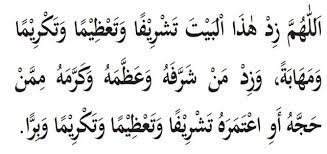 اَللّٰهُمَّ زِدْ هٰذَا الْبَيْتَ تَشْرِيْفًا وَتَعْظِيْمًا وَتَكْرِيْمًا
وَمَهَابَةً، وَزِدْ مَنْ شَرَّفَهُ وَعَظَّمَهُ وَكَرَّمَهُ مِمَّنْ
حَجَّهُ أَوِ اعْتَمَرَهُ تَشْرِيْفًا وَتَعْظِيْمًا وَتَكْرِيْمًا وَبِرًّا.